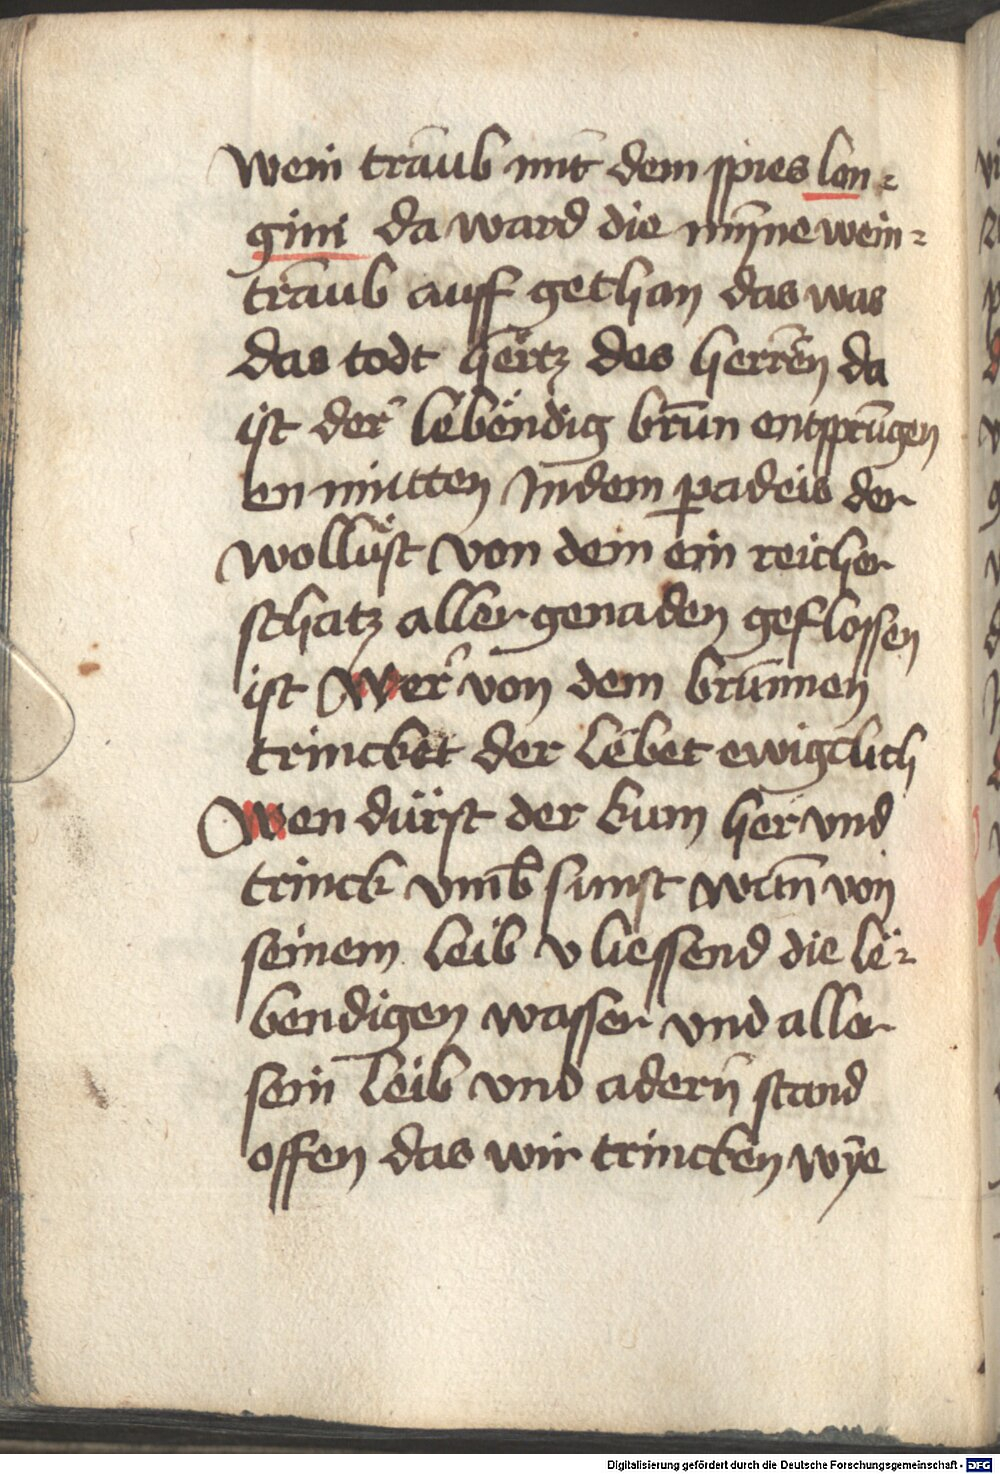 wein traub mit dem spies lon⸗
gini da ward die mynne wein⸗
traub auff gethan das was
das todt hertz des herren da
ist der lebendig brun entsprungen
en mitten Indem padeis der
wollust von dem ein reicher
schatz aller genaden geflossen
ist Wer von dem brunnen
trincket der lebet ewigclich
Wen dürst der kum her vnd
trinck vmb sunst wann von
seinem leib vliessend die le⸗
bendigen wasser vnd aller
sein leib vnd adern stand
offen das wir trincken wÿe
Digitalisierung gefördert durch die Deutsche Forschungsgemeinschaft - DFG